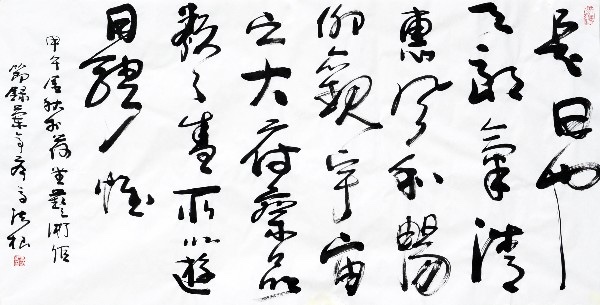 是日也
天朗氣清
惠風和暢
仰觀宇宙
之大俯察品
類之盛所以遊
目騁懷
甲午秋於荷堂藝術館
節錄蘭亭序